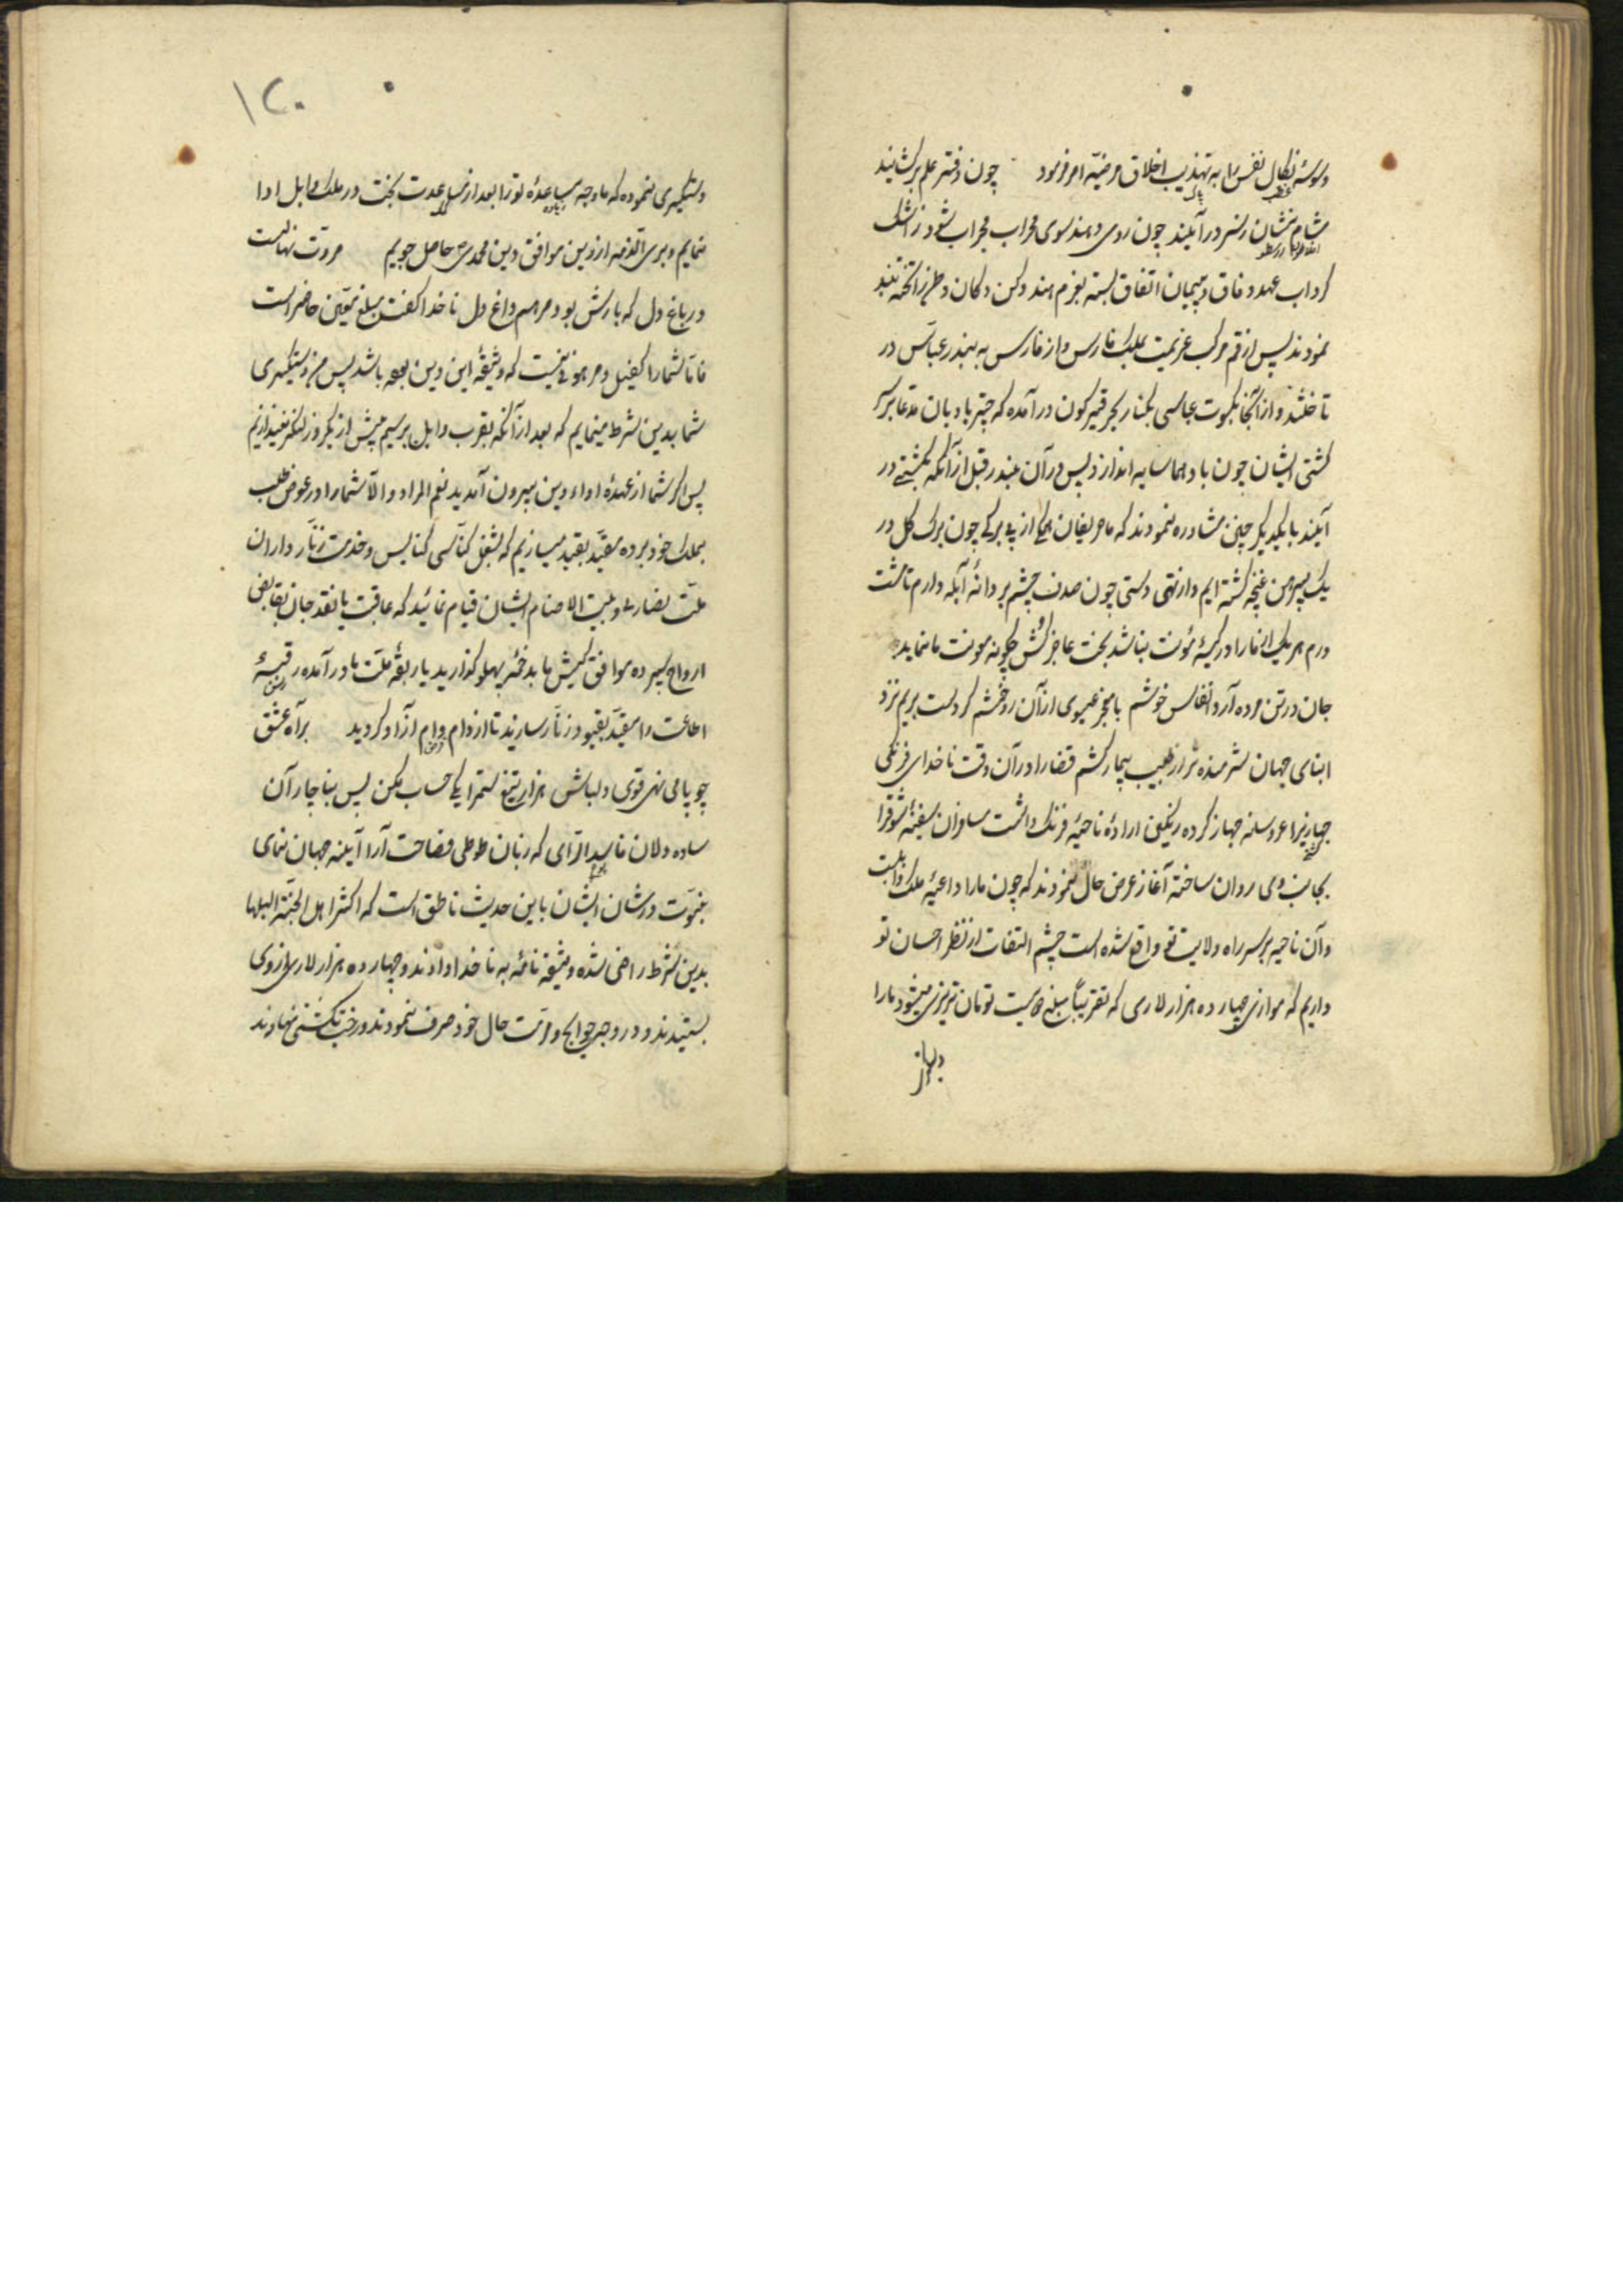 وسوسهٔ نفس را به تهذیب اخلاق مرضیّه امر فرمود چون دفتر علم برکشانید
نشان سر درآیند چون روی دهند سوی محراب محراب شود ز اشک
کرداب عهد وفاق و پیمان اتفاق بسته بعزم هند و دکن دکان و طرز را تخته بند
نمودند پس از قم مرکب عزیمت بملک فارس و از فارس به بندر عباس در
تاختند و از آنجا بکسوت عباسی بکنار بحر قیرکون درآمده که چتر بادبان مدعا بر سر
کشتی ایشان چون باد هما سایه اندازد پس در آن بندر قبل از آنکه بکشتی در
آیند با یکدیکر چنین مشاوره نمودند که ما حریفان از بی برکی چون برک کل در
یک پیرهن غنچه کشته ایم و از تهی دستی چون صدف چشم بر دانهٔ آبله دارم تا مشت
درم هر یک از ما را در کیسهٔ مؤنت نباشد بخت عاجزکش چکونه معونت ما نماید
جان در تن مرده آرد انفاس خوشم با معجز عیسوی از آن رو خشم کر دست بریم نزد
ابنای جهان شرمنده تر از طبیب بیمارکشم قضا را در آن وقت ناخدای فرنکی
جهازی را عروسانه جهاز کرده رنکین ارادهٔ ناحیهٔ فرنک داشت مسافران سفینهٔ شوق را
بجانب وی روان ساخته آغاز عرض حال نمودند که چون ما را داعیهٔ ملک دابل است
و آن ناحیه بر سر راه ولایت تو واقع شده است چشم التفات از نظر احسان تو
داریم که موازی چهارده هزار لاری که تقریباً مبلغ دویست تومان تبریزی میشود ما را
دستگیری نموده که ما وجه مساعدهٔ تو را بعد از مساعدت بخت در ملک دابل ادا
نمایم و بری الذمه از دین موافق دین محمدی حاصل جوییم مروّت نهالیست
در باغ دل که بارش بود مرهم داغ دل ناخدا گفت مبلغ معیّن حاضر است
فامّا شما را کفیل و مرهونی نیست که وثیقهٔ این دین بوده باشد پس من دستگیری
شما بدین شرط مینمایم که بعد از آنکه بقرب دابل برسیم پیش از یکروز لنکر نیندازیم
پس اکر شما از عهدهٔ اداء دین بیرون آمدید نعم المراد و الّا شما را در عوض طلب
بملک خود برده مقیّد بقید میسازیم که بشغل کنّاسی کنایس و خدمت زنّار داران
ملّت نصاری و بیت الاصنام ایشان قیام نمائید که عاقبت یا نقد جان بقابض
ارواح سپرده موافق کیش ما بدخمه پهلو کذارید یا ربقهٔ ملّت ما درآمده رقبهٔ
اطاعت را مقیّد بقیود زنّار سازید تا از دام وام آزاد کردید براه عشق
چو پا می نهی قوی دل باش هزار تیغ ستم را یکی حساب مکن پس بناچار آن
ساده دلان فاسد الرّای که زبان طوطی فصاحت آرا آیینه جهان نمای
نبوّت در شان ایشان باین حدیث ناطق است که اکثر اهل الجنّة البلها
بدین شرط راضی شده وثیقه نامه به ناخدا دادند و چهارده هزار لاری از وی
بستیدند و در وجه حوایج و مرمّت حال خود صرف نمودند و رخت بکشتی نهادند
۱۲۰